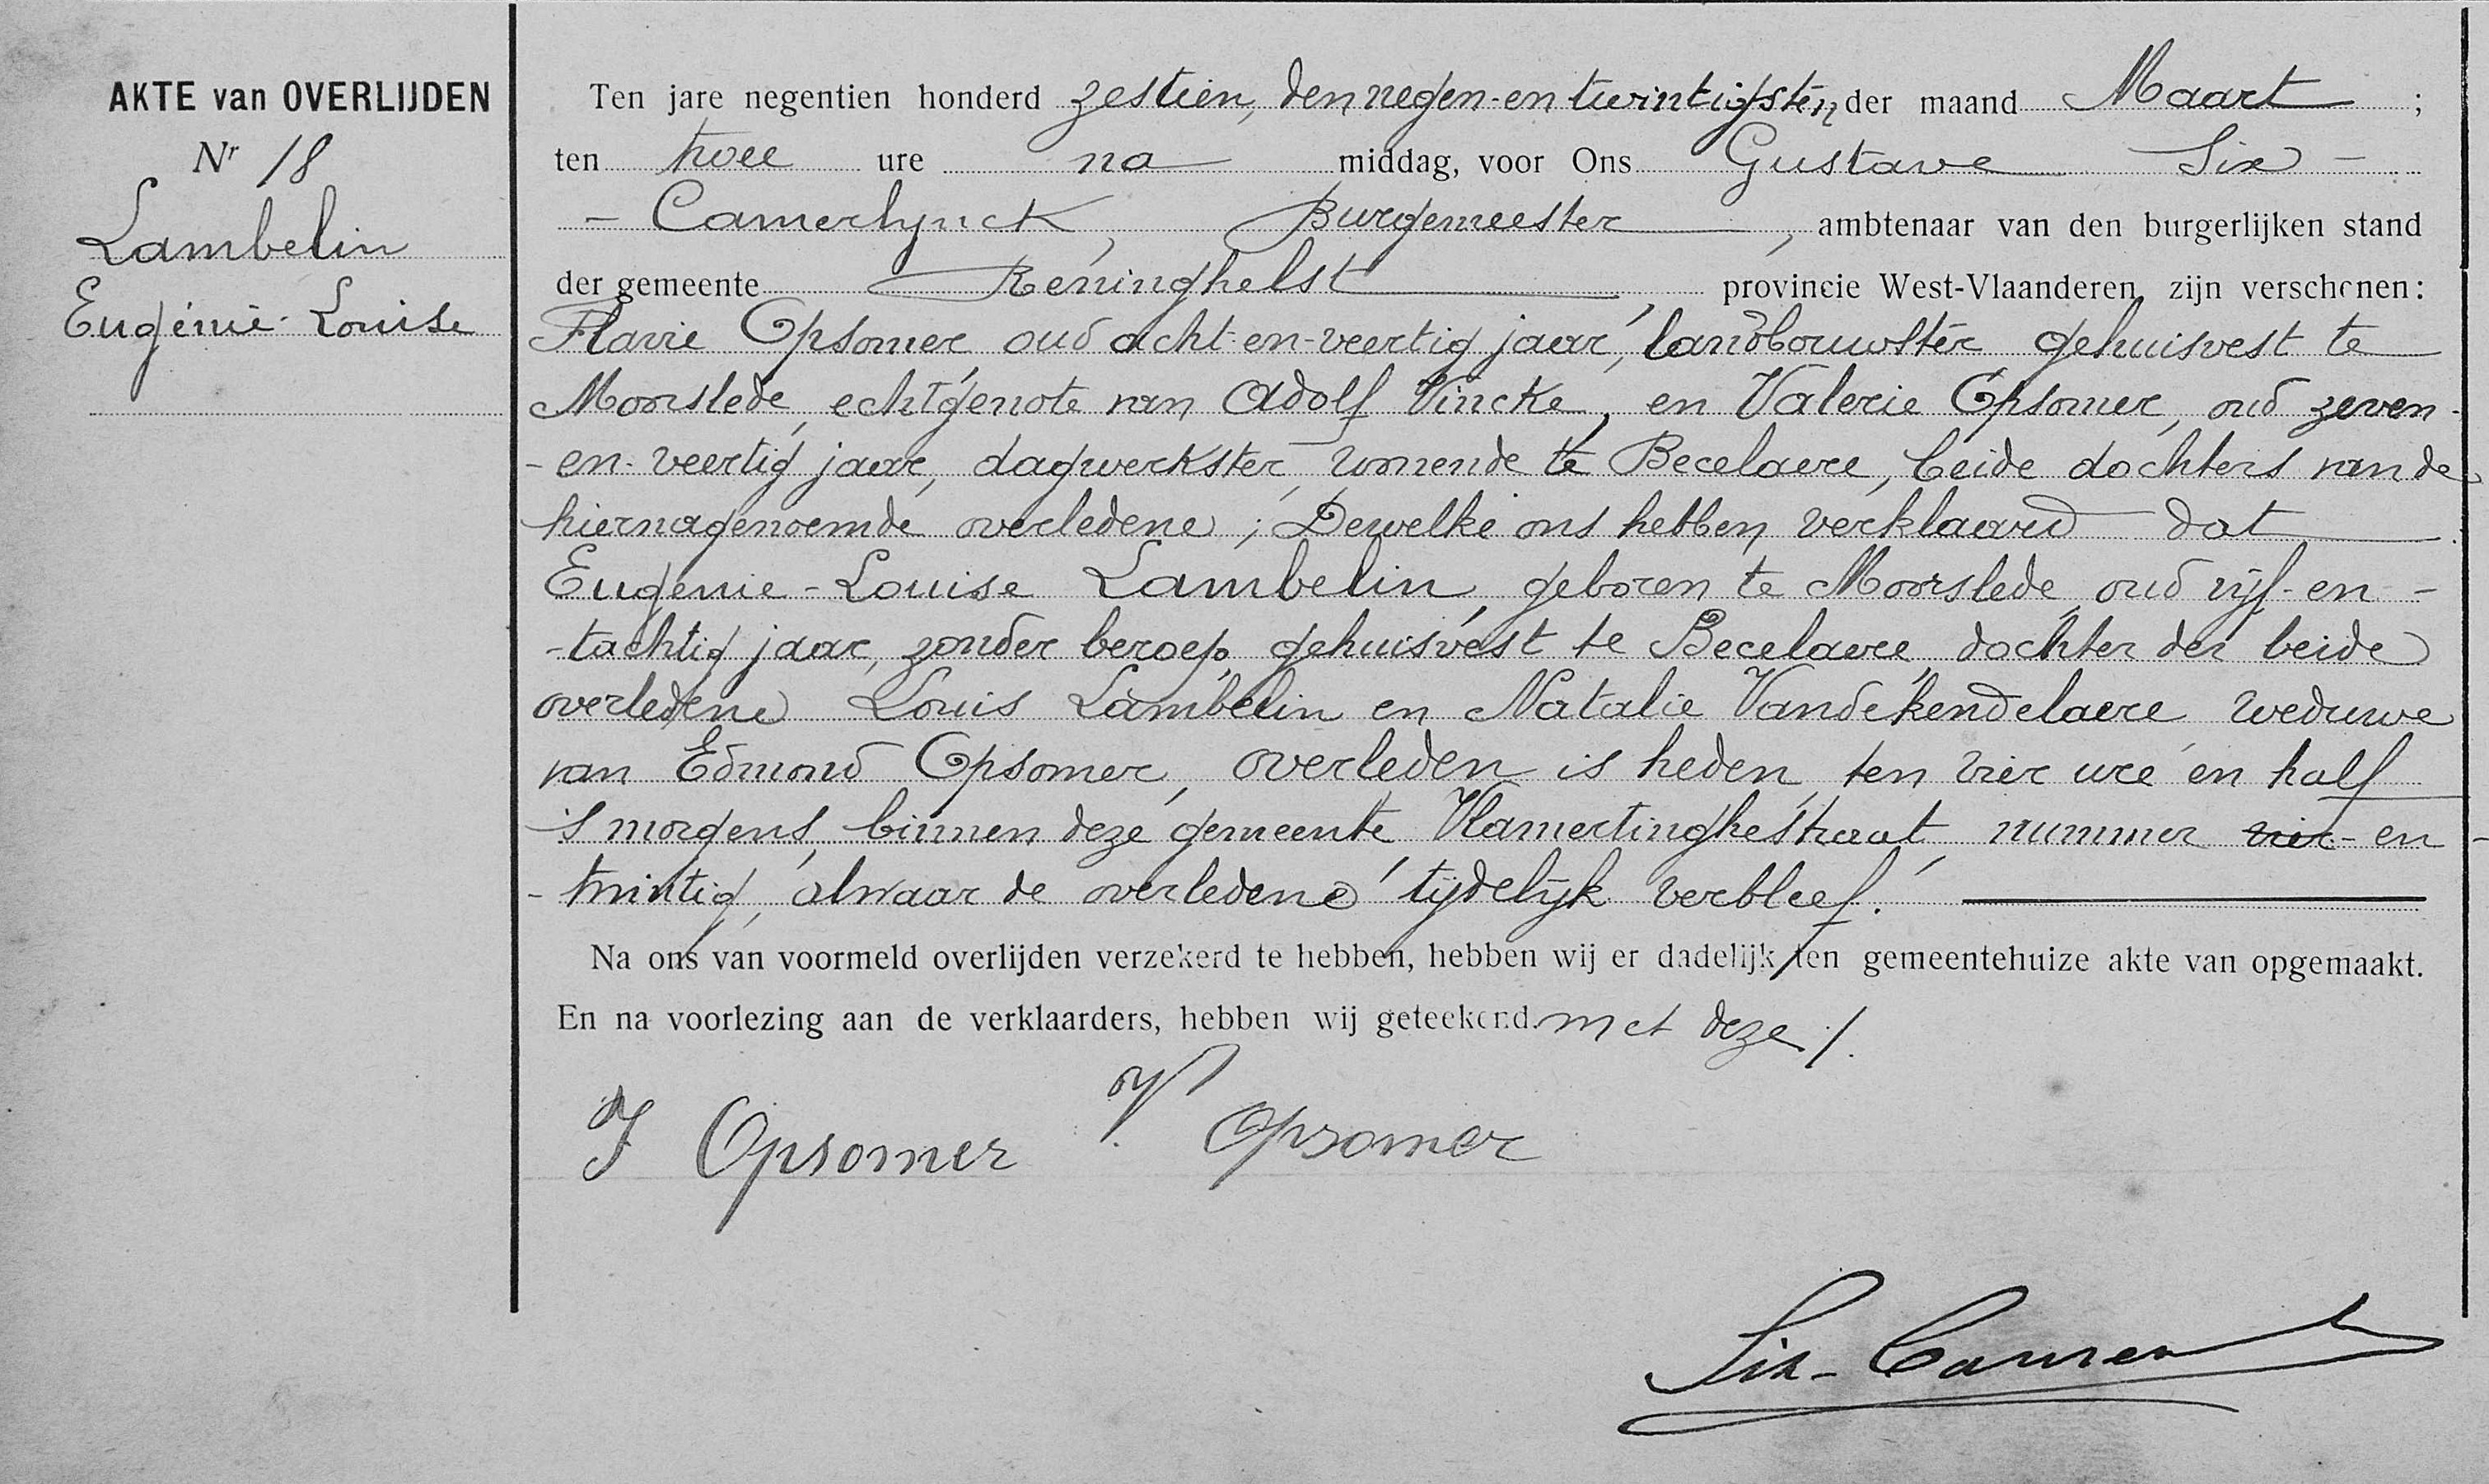 AKTE van OVERLIJDEN
Nr 18
Lambelin
Eugénie-Louise
Ten jare negentien honderd zestien, den negen-en twintigsten der maand Maart ;
ten twee ure na middag, voor Ons Gustave Six -
- Camerlynck, Burgemeester, ambtenaar van den burgerlijken stand
der gemeente Reninghelst, provincie West-Vlaanderen, zijn verschenen:
Flavie Opsomer, oud acht-en-veertig jaar, landbouwster gehuisvest te
Moorslede, echtgenote van Adolf Vincke, en Valerie Opsomer, oud zeven-
-en-veertig jaar, dagwerkster, wonende te Becelaere, beide dochters van de
hiernagenoemde overledene; Dewelke ons hebben verklaard dat
Eugenie-Louise Lambelin, geboren te Moorslede, oud vijf-en-
-tachtig jaar, zonder beroep, gehuisvest te Becelaere, dochter der beide
overledene Louis Lambelin en Natalie Vandekendelaere weduwe
van Edmond Opsomer, overleden is heden, ten vier ure en half
's morgens, binnen deze gemeente, Vlamertinghestraat, nummer vier-en-
-twintig, alwaar de overledene tijdelijk verbleef.
Na ons van voormeld overlijden verzekerd te hebben, hebben wij er dadelijk ten gemeentehuize akte van opgemaakt.
En na voorlezing aan de verklaarders, hebben wij geteekend met deze /.
F Opsomer V. Opsomer
Six-Camer